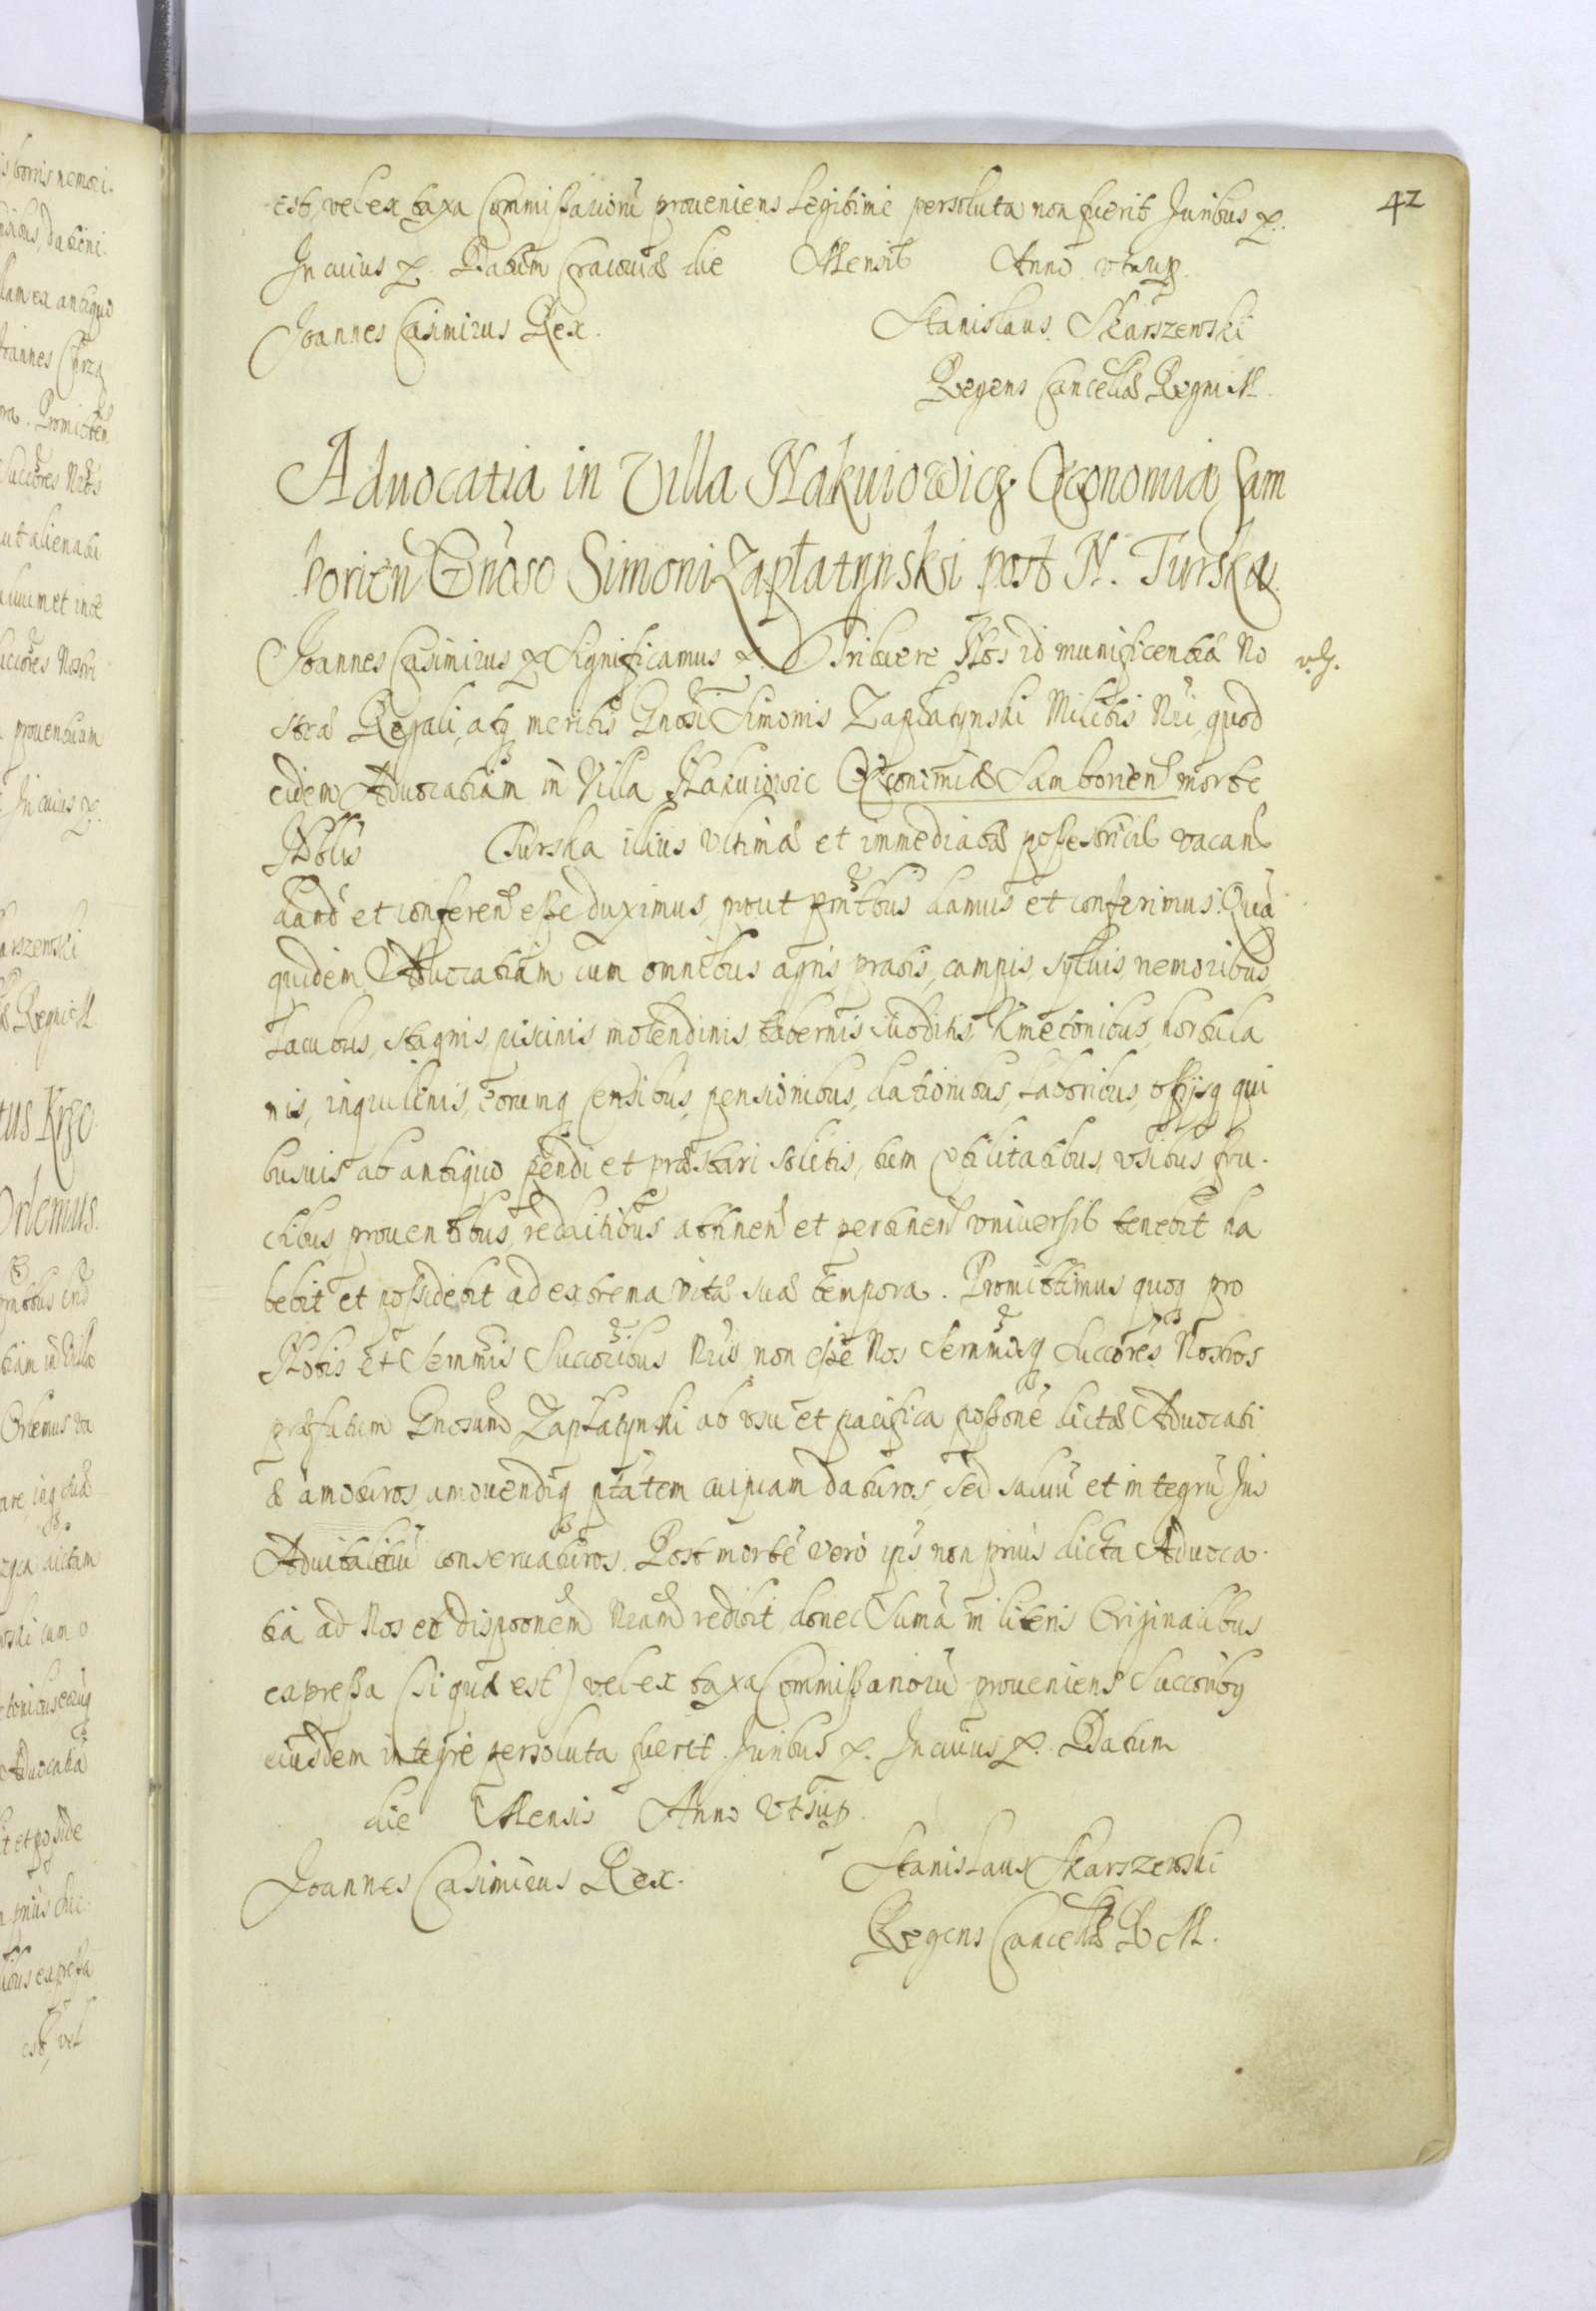 42
est, vel ex taxa Commissariorũ proueniens Legitimè persoluta non fuerit Juribus &.
In cuius &. Datum Cracouiæ die Mensis Anno vtsup.
Joannes Casimirus Rex. Stanislaus Skarszewski
Regens Cancellæ Regni M.
Aduocatia in Villa Nakuiowicz Œconomiæ Sam
borien Gñoso Simoni Zapłatynski post N. Turska.
Joannes Casimirus & Significamus & Tribuere Nos id munificentiæ No
stræ Regali, atq meritis Gnosi Simonis Zapłatynski Militis Nri, quod
eidem Aduocatiam in Villa Nakuiowic Œconimiæ Samborien morte
Nobilis Turska illius vltimæ et immediatæ possestricis vacan
dand et conferen esse duximus, prout pntibus damus et conferimus. Quã
quidem Aduocatiam cum omnibus agris, pratis, campis, syluis, nemoribus,
Lacubus, stagnis, piscinis, molendinis, tabernis, Kmetonibus, hortula
nis, inquilinis, eorumq Censibus, pensionibus, dationibus, Laboribus, qui
busuis ab antiquo pendi et præstari solitis, tum vtilitatibus, vsibus fru.
ctibus prouentibus, redditibus attinen et pertinen vniversis tenebit ha
bebit et possidebit ad extrema vitæ suæ tempora. Promittimus quoq pro
Nobis et Sernmis Succoribus Nris, non esse Nos Sernmosq Succores Nostros
præfatum Gnosum Zapłatynski ab vsu et pacifica possone dictæ Aduocati
æ amoturos amouendiq ptatem cuipiam daturos, sed saluũ et integrũ Jus
Aduitalitiũ conseruaturos. Post mortẽ verò ipsi non prius dicta Aduoca.
tia ad Nos et dispoonem Nram redibit, donec Suma in literis Originalibus
expressa (si quæ est) vel ex taxa Commissariorũ proueniens Succoribq
eiusdem integrè persoluta fuerit. Juribus &. In cuius &. Datum
die Mensis Anno Vtsup.
Joannes Casimirus Rex. Stanislaus Skarszewski
Regens Cancellæ R M.